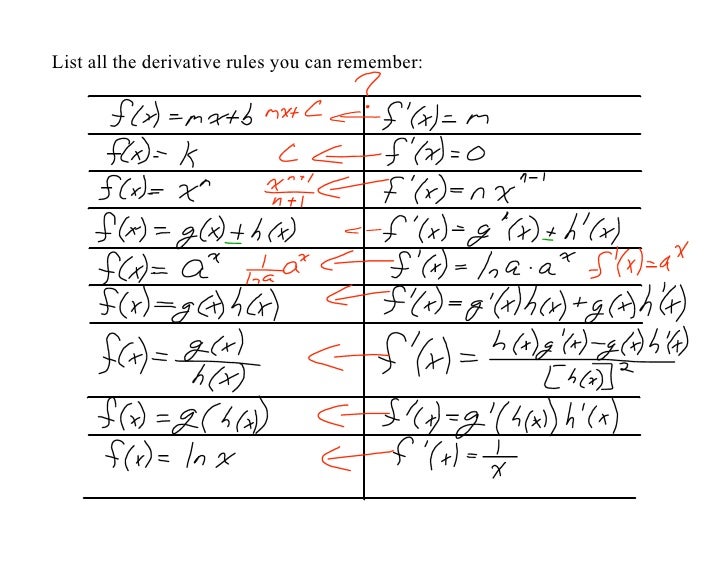 List all the derivative rules you can remember:
?
f(x) = mx+b mx+C ← f'(x) = m
f(x) = k C ← f'(x) = 0
f(x) = xⁿ xⁿ⁺¹/n+1 ← f'(x) = nxⁿ⁻¹
f(x) = g(x) ± h(x) ← f'(x) = g'(x) ± h'(x)
f(x) = aˣ 1/ln a aˣ ← f'(x) = ln a · aˣ f'(x) = aˣ
f(x) = g(x)h(x) ← f'(x) = g'(x)h(x) + g(x)h'(x)
f(x) = g(x)/h(x) ← f'(x) = h(x)g'(x) − g(x)h'(x)/[h(x)]²
f(x) = g(h(x)) ← f'(x) = g'(h(x))h'(x)
f(x) = ln x ← f'(x) = 1/x